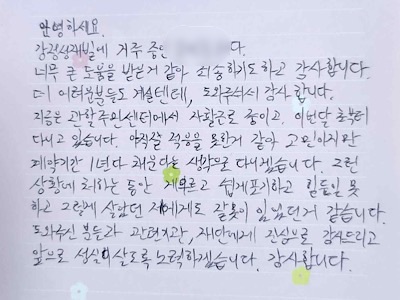 안녕하세요.
강점성재빌에 거주 중인 다.
너무 큰 도움을 받은거 같아 죄송하기도하고 감사합니다.
더 어려운분들도 계실텐데, 도와주셔서 감사합니다.
지금은 관할주민센터에서 자활근로 중이고, 이번달 초부터
다니고 있습니다. 아직잘 적응을 못한거 같아 고민이지만
계약기간 1년다 채운다는 생각으로 다니겠습니다. 그런
상황에 처하는 동안 게으르고 쉽게포기하고 힘든일 못
하고 그렇게 살았던 저에게도 잘못이 있었던거 같습니다.
도와주신 분들과 관련기관, 재단에게 진심으로 감사드리고
앞으로 성실히살도록 노력하겠습니다. 감사합니다.